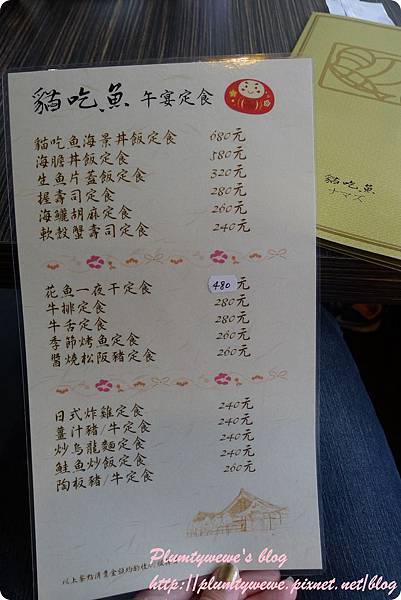 貓吃魚 午宴定食
貓吃魚海景丼飯定食 680元
海膽丼飯定食 580元
生魚片蓋飯定食 320元
握壽司定食 280元
海鱺胡麻定食 260元
軟殼蟹壽司定食 240元
花魚一夜干定食 480元
牛排定食 280元
牛舌定食 280元
季節烤魚定食 260元
醬燒松阪豬定食 260元
日式炸雞定食 240元
薑汁豬/牛定食 240元
炒烏龍麵定食 240元
鮭魚炒飯定食 240元
陶板豬/牛定食 260元
貓吃魚
ナマズ
以上餐點消費金額均酌收
Plumtywewe's blog
http://plumtywewe.pixnet.net/blog